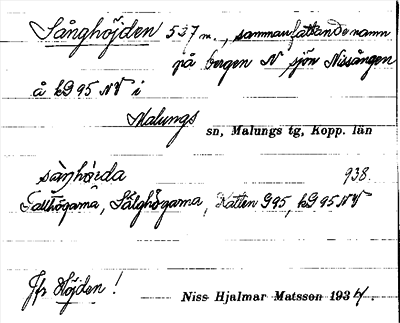 Sånghöjden 537 m., sammanfattande namn
på bergen N sjön Nissången
å kB 95 NV i
Malungs sn, Malungs tg, Kopp. län
938.
Tallhögarna, Sålghögarna, Katten G95, kB 95 NV
Jfr Höjden!
Niss Hjalmar Matsson 1934.